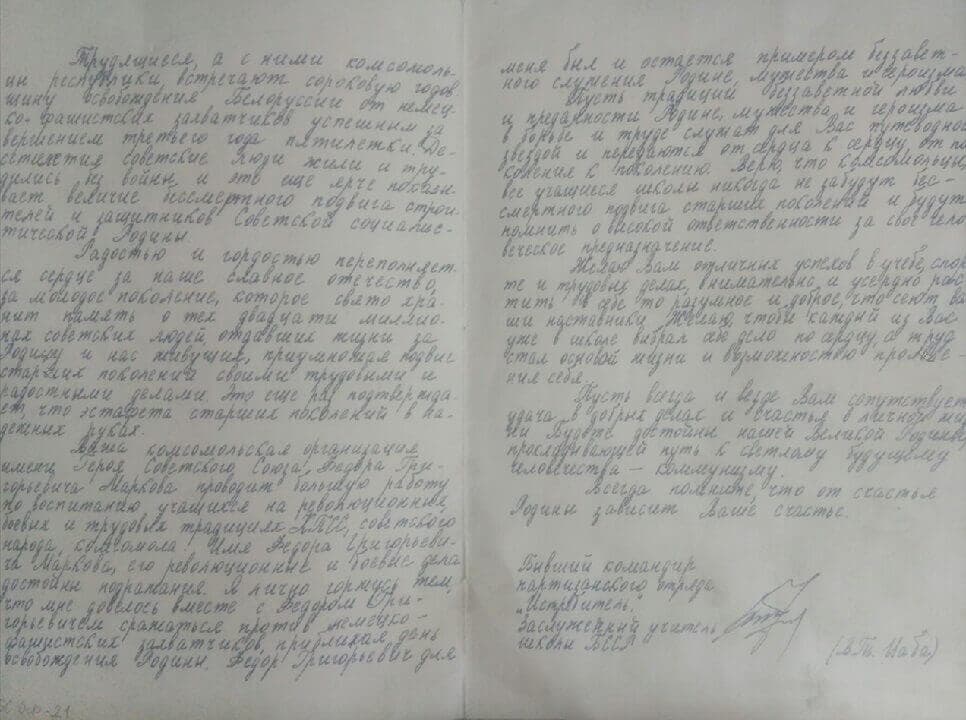 Трудящиеся, а с ними комсомоль-
цы республики, встречают сороковую годов
щину освобождения Белоруссии от немец-
ко-фашистских захватчиков успешным за
вершением третьего года пятилетки. Де-
сятилетия советские люди жили и тру-
дились без войны и это еще ярче показы-
вает величие бессмертного подвига строи-
телей и защитников Советской социалис-
тической Родины.
Радостью и гордостью переполняет-
ся сердце за наше славное отечество,
за молодое поколение, которое свято хра-
нит память о тех двадцати миллио-
нах советских людей, отдавших жизни за
Родину и нас живущих, приумножая подвиг
старших поколений своими трудовыми и
радостными делами. Это еще раз подтвержда-
ет, что эстафета старших поколений в на-
дежных руках.
Ваша комсомольская организация
имени Героя Советского Союза Федора Гри-
горьевича Маркова проводит большую работу
по воспитанию учащихся на революционных,
боевых и трудовых традициях КПСС, советского
народа, комсомола. Имя Федора Григорьеви-
ча Маркова, его революционные и боевые дела
достойны подражания. Я лично горжусь тем,
что мне довелось вместе с Федором Гри-
горьевичем сражаться против немецко-
фашистских захватчиков, приближая день
освобождения Родины. Федор Григорьевич для
меня был и остается примером беззавет-
ного служения Родине, мужества и героизма.
Пусть традиции беззаветной любви
и преданности Родине, мужества и героизма
в борьбе и труде служат для Вас путеводной
звездой и передаются от сердца к сердцу, от по
коления к поколению. Верю, что комсомольцы,
все учащиеся школы никогда не забудут бес-
смертного подвига старших поколений и будут
помнить о высокой ответственности за свое чело
веческое предназначение.
Желаю Вам отличных успехов в учебе, спор
те и трудовых делах, внимательно и усердно рас
тить в себе то разумное и доброе, что сеют Ва
ши наставники. Желаю, чтобы каждый из Вас
уже в школе выбрал дело по сердцу, а труд
стал основой жизни и возможностью проявле-
ния себя.
Пусть всегда и везде Вам сопутствует
удача в добрых делах и счастье в личной жиз
ни. Будьте достойны нашей Великой Родины,
прокладывающей путь к светлому будущему
человечества - коммунизму.
Всегда помните, что от счастья
Родины зависит Ваше счастье.
Бывший командир
партизанского отряда
"Истребитель",
Заслуженный учитель
школы БССР